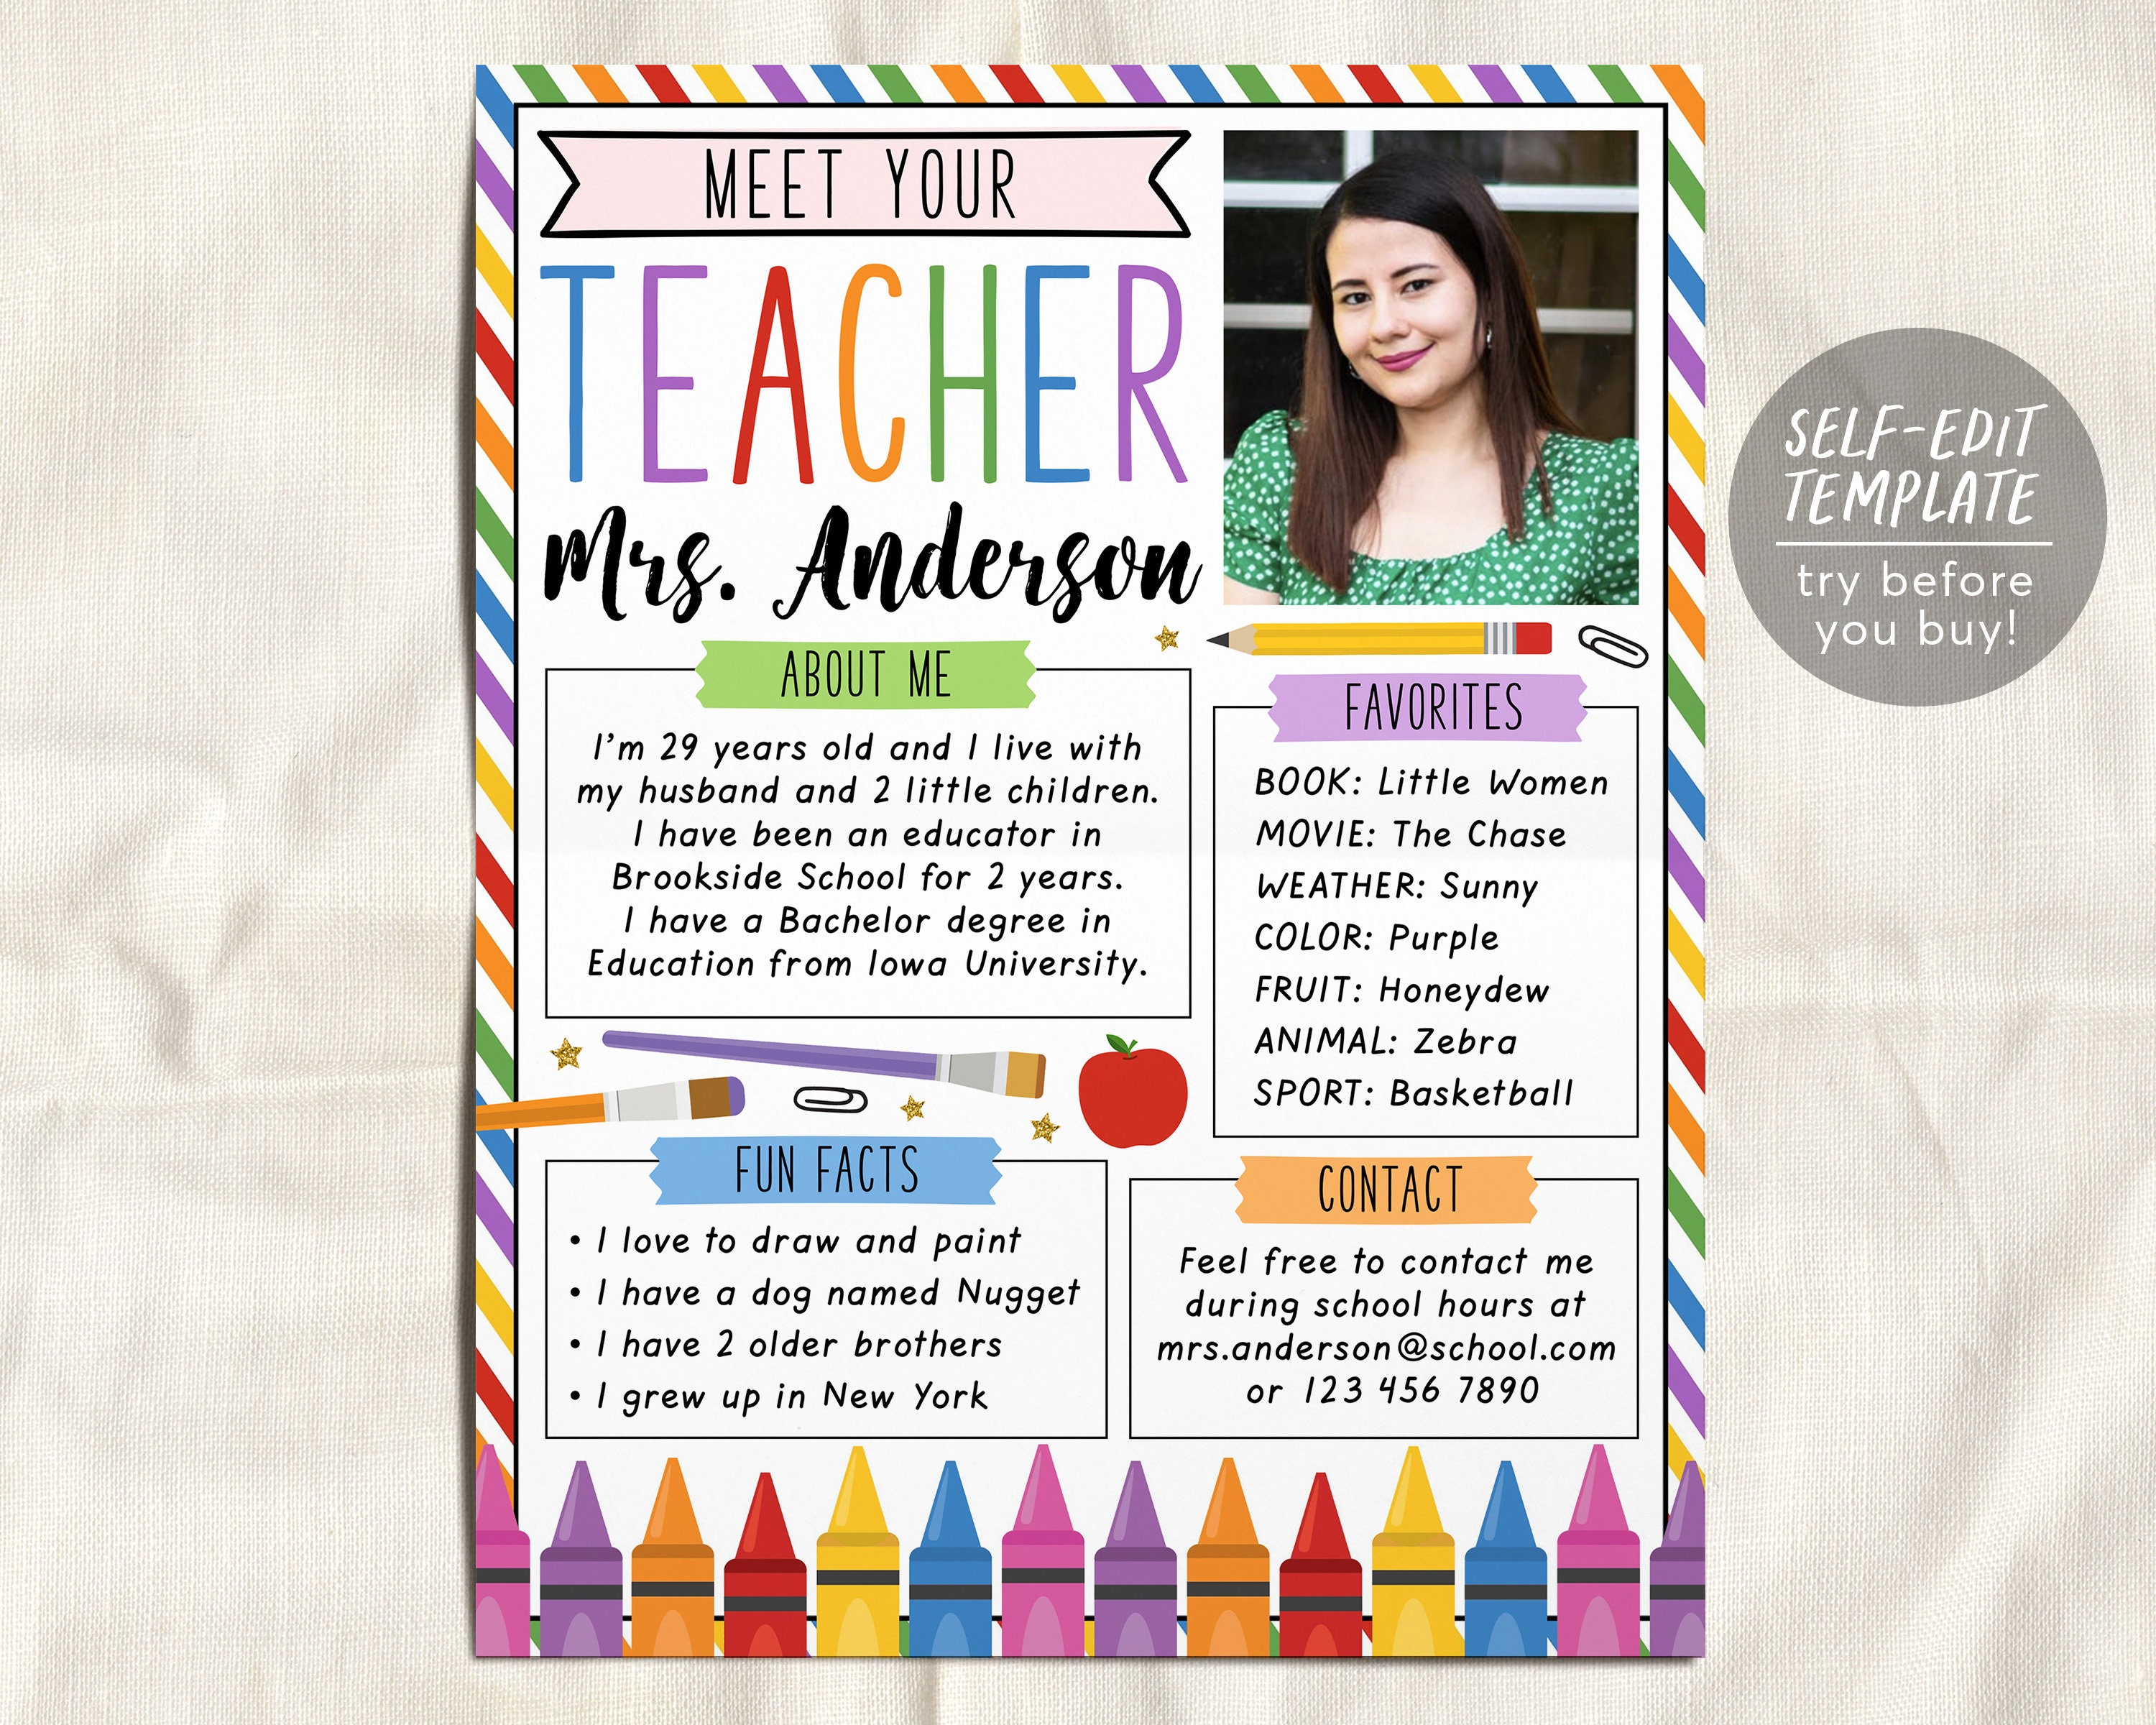 MEET YOUR
TEACHER
Mrs. Anderson
ABOUT ME
I'm 29 years old and I live with
my husband and 2 little children.
I have been an educator in
Brookside School for 2 years.
I have a Bachelor degree in
Education from Iowa University.
FAVORITES
BOOK: Little Women
MOVIE: The Chase
WEATHER: Sunny
COLOR: Purple
FRUIT: Honeydew
ANIMAL: Zebra
SPORT: Basketball
FUN FACTS
• I love to draw and paint
• I have a dog named Nugget
• I have 2 older brothers
• I grew up in New York
CONTACT
Feel free to contact me
during school hours at
mrs.anderson@school.com
or 123 456 7890
SELF-EDIT
TEMPLATE
try before
you buy!